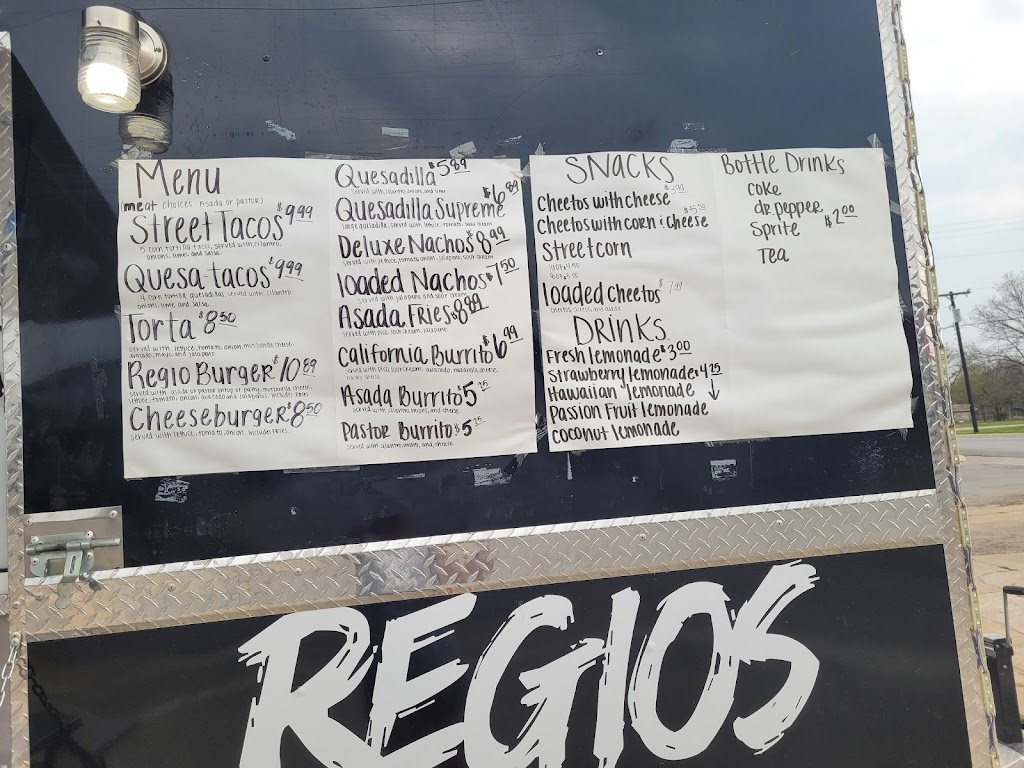 Menu
(meat choices Asada or pastor)
Street Tacos $9.99
5 corn tortilla tacos, served with cilantro,
onions, limes and salsa.
Quesa-tacos $9.99
4 corn tortilla quesadillas served with cilantro
onions, lime, and salsa.
Torta $8.50
served with lettuce, tomato, onion, mozzarella cheese,
avocado, mayo, and jalapano
Regio Burger $10.89
served with asada or pastor on top of patty, mozzarella cheese,
lettuce, tomato, onion, avocado and jalapeños. includes fries
Cheeseburger $8.50
served with lettuce, tomato, onion. includes fries.
Quesadilla $5.89
served with cilantro, onions, and lime
Quesadilla Supreme $6.89
large quesadilla, served with lettuce, tomato, sour cream
Deluxe Nachos $8.99
served with lettuce, tomato, onion, jalapano, sour cream
loaded Nachos $7.50
served with jalapano, and sour cream
Asada Fries $8.89
served with pico, sour cream, jalapano
California Burrito $6.99
served with pico, sour cream, avocado, mozzarella cheese,
Asada Burrito $5.25
served with cilantro, onions, and cheese
Pastor Burrito $5.25
served with cilantro, onions, and cheese
SNACKS
Cheetos with cheese $3.99
Cheetos with corn & cheese
Street corn
loaded Cheetos $7.99
DRINKS
Fresh lemonade $3.00
Strawberry lemonade $4.25
Hawaiian lemonade ↓
Passion Fruit lemonade
coconut lemonade
Bottle Drinks
coke
dr. pepper
Sprite $2.00
Tea
REGIOS